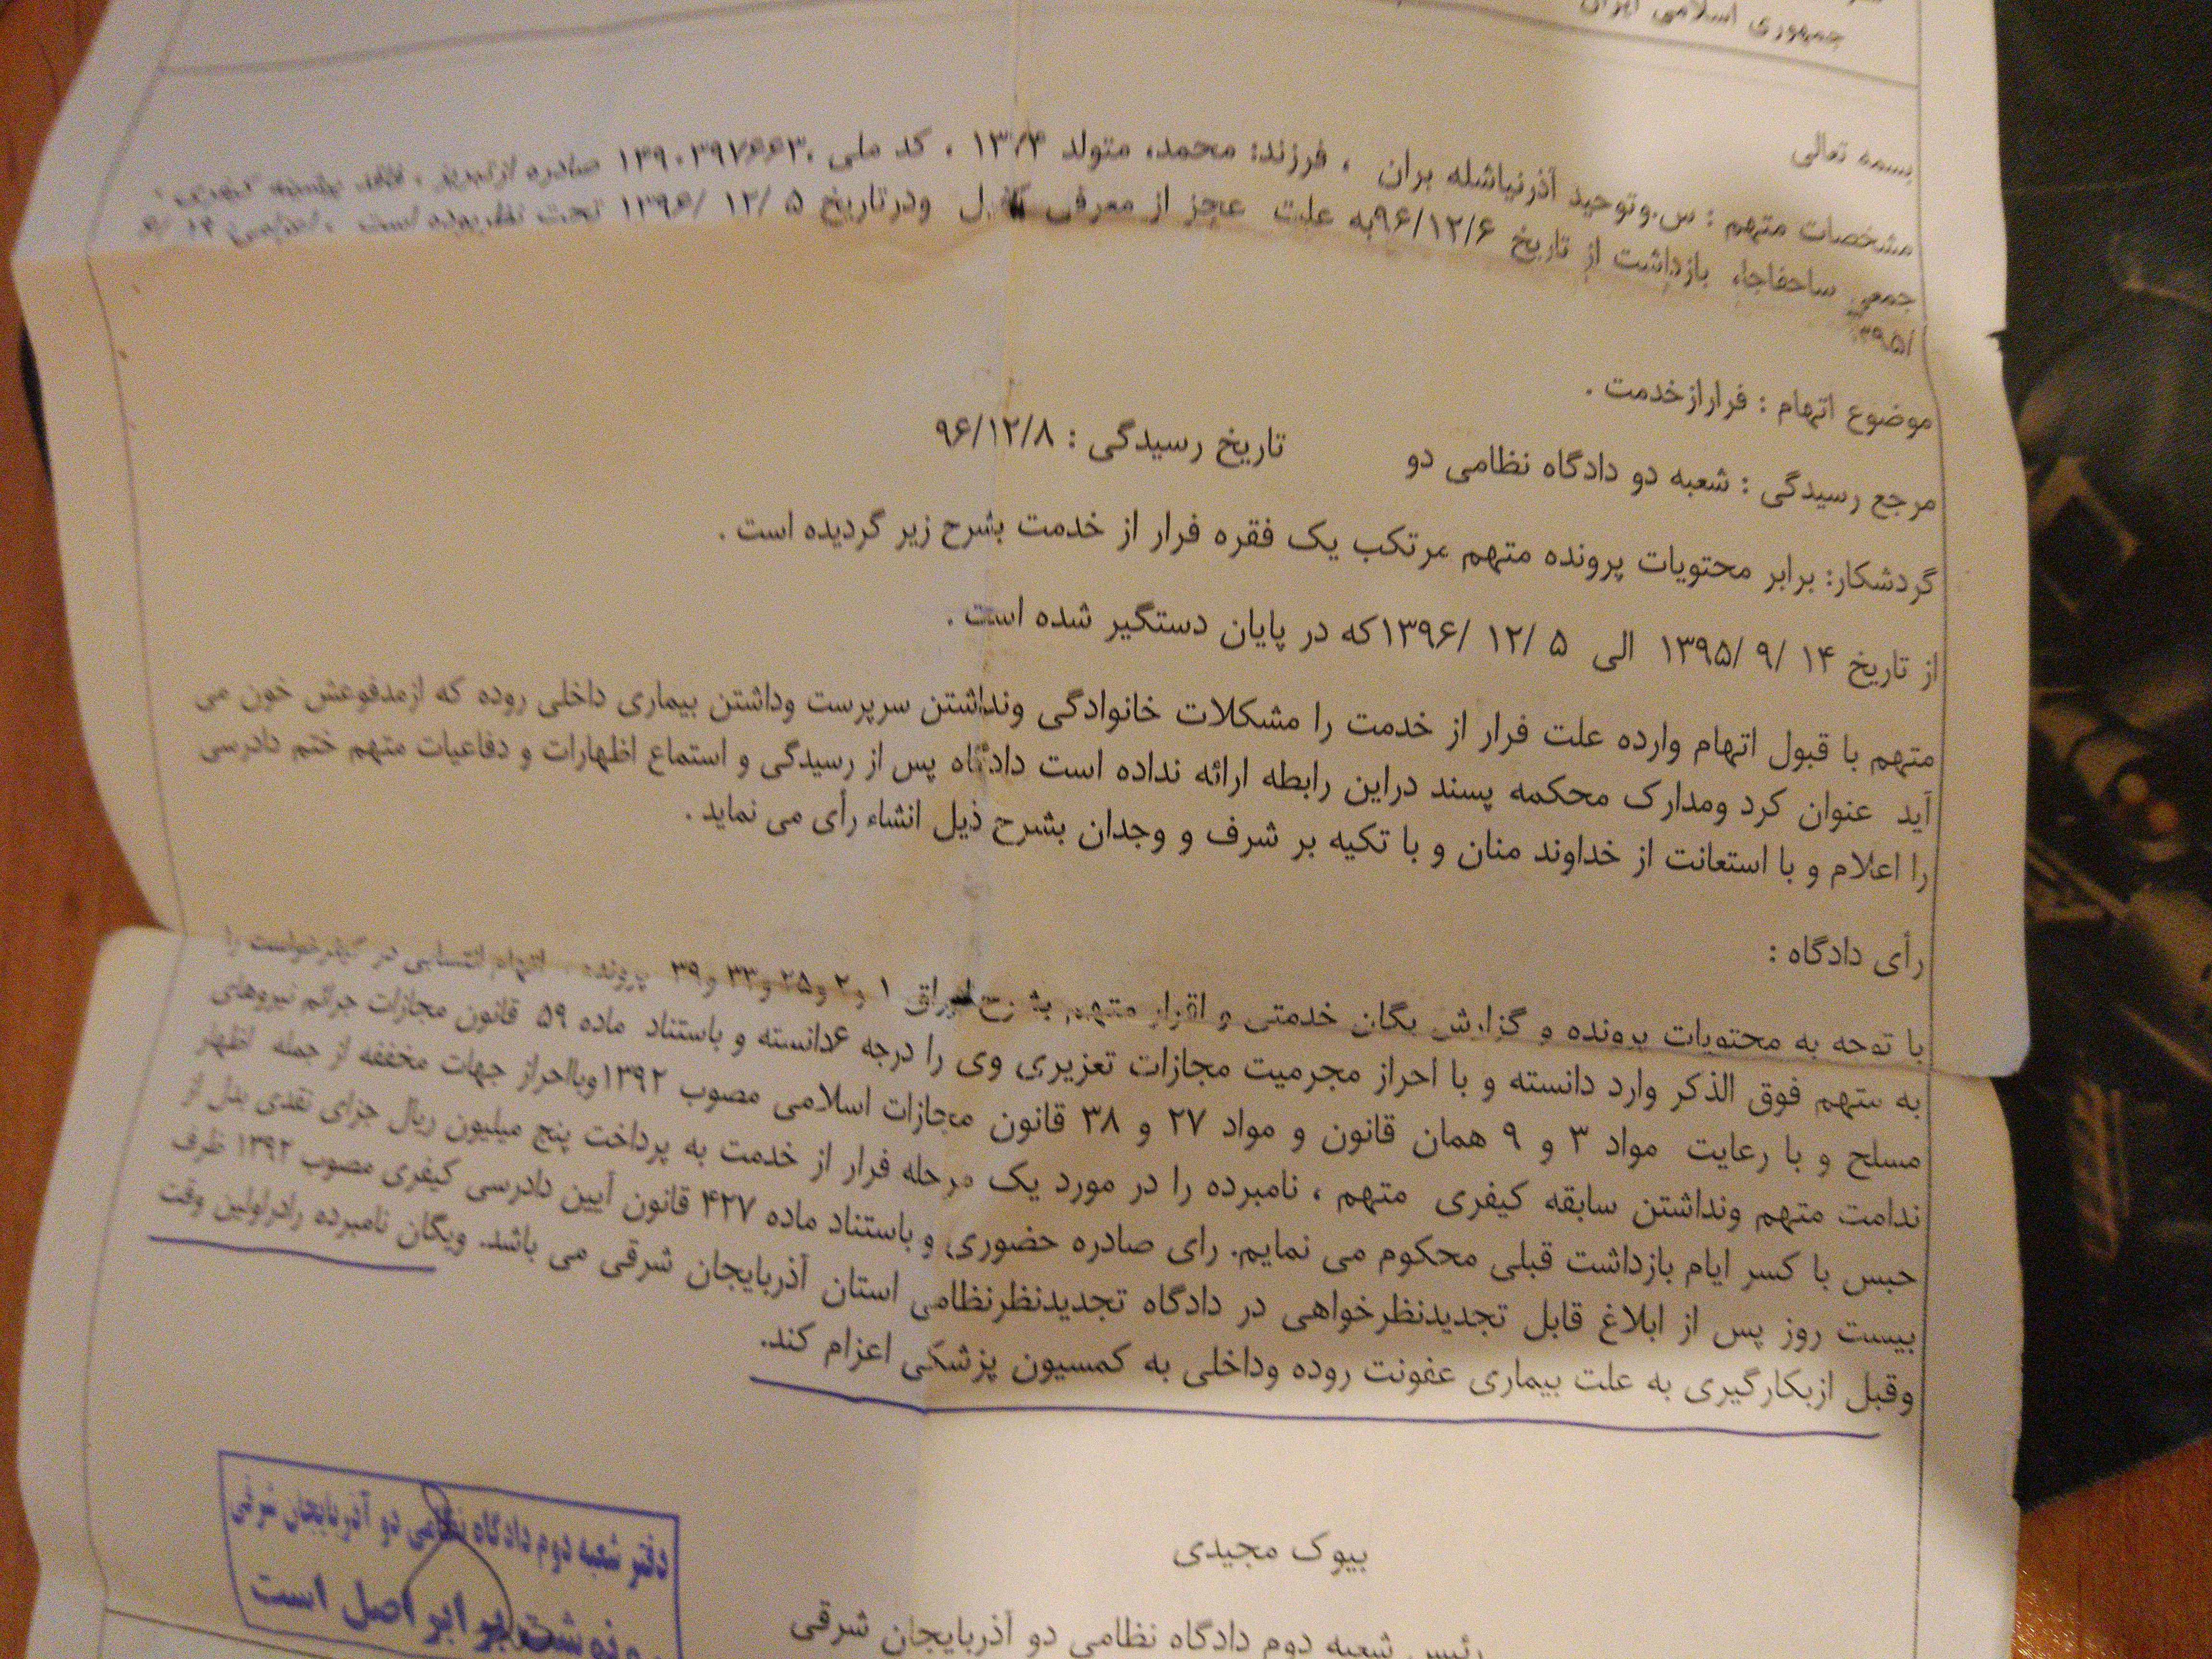 جمهوری اسلامی ایران
بسمه تعالی
مشخصات متهم : س.وتوحید آذرنیاشله بران ، فرزند: محمد، متولد ۱۳/۴ ، کد ملی ۱۳۹۰۳۹۷۶۶۳۰ صادره ازتبریز ، فاقد پیشینه کیفری ،
جمعی ساحفاجا، بازداشت از تاریخ ۹۶/۱۲/۶به علت عجز از معرفی کفیل ودرتاریخ ۵ /۱۲ /۱۳۹۶ تحت نظربوده است ، اعزامی ۱۴
موضوع اتهام : فرارازخدمت .
مرجع رسیدگی : شعبه دو دادگاه نظامی دو تاریخ رسیدگی : ۹۶/۱۲/۸
گردشکار: برابر محتویات پرونده متهم مرتکب یک فقره فرار از خدمت بشرح زیر گردیده است .
از تاریخ ۱۴ /۹ /۱۳۹۵ الی ۵ /۱۲ /۱۳۹۶که در پایان دستگیر شده است .
متهم با قبول اتهام وارده علت فرار از خدمت را مشکلات خانوادگی ونداشتن سرپرست وداشتن بیماری داخلی روده که ازمدفوعش خون می
آید عنوان کرد ومدارک محکمه پسند دراین رابطه ارائه نداده است دادگاه پس از رسیدگی و استماع اظهارات و دفاعیات متهم ختم دادرسی
را اعلام و با استعانت از خداوند منان و با تکیه بر شرف و وجدان بشرح ذیل انشاء رأی می نماید .
رأی دادگاه :
با توجه به محتویات پرونده و گزارش یگان خدمتی و اقرار متهم بشرح اوراق ۱ و۲ و۲۵ و۳۳ و۳۹ پرونده ، اتهام انتسابی در کیفرخواست را
به متهم فوق الذکر وارد دانسته و با احراز مجرمیت مجازات تعزیری وی را درجه ۶دانسته و باستناد ماده ۵۹ قانون مجازات جرائم نیروهای
مسلح و با رعایت مواد ۳ و ۹ همان قانون و مواد ۲۷ و ۳۸ قانون مجازات اسلامی مصوب ۱۳۹۲وبااحراز جهات مخففه از جمله اظهار
ندامت متهم ونداشتن سابقه کیفری متهم ، نامبرده را در مورد یک مرحله فرار از خدمت به پرداخت پنج میلیون ریال جزای نقدی بدل از
حبس با کسر ایام بازداشت قبلی محکوم می نمایم. رای صادره حضوری و باستناد ماده ۴۲۷ قانون آیین دادرسی کیفری مصوب ۱۳۹۲ ظرف
بیست روز پس از ابلاغ قابل تجدیدنظرخواهی در دادگاه تجدیدنظرنظامی استان آذربایجان شرقی می باشد. ویگان نامبرده رادراولین وقت
وقبل ازبکارگیری به علت بیماری عفونت روده وداخلی به کمسیون پزشکی اعزام کند.
بیوک مجیدی
رئیس شعبه دوم دادگاه نظامی دو آذربایجان شرقی
دفتر شعبه دوم دادگاه نظامی دو آذربایجان شرقی
رونوشت برابر اصل است